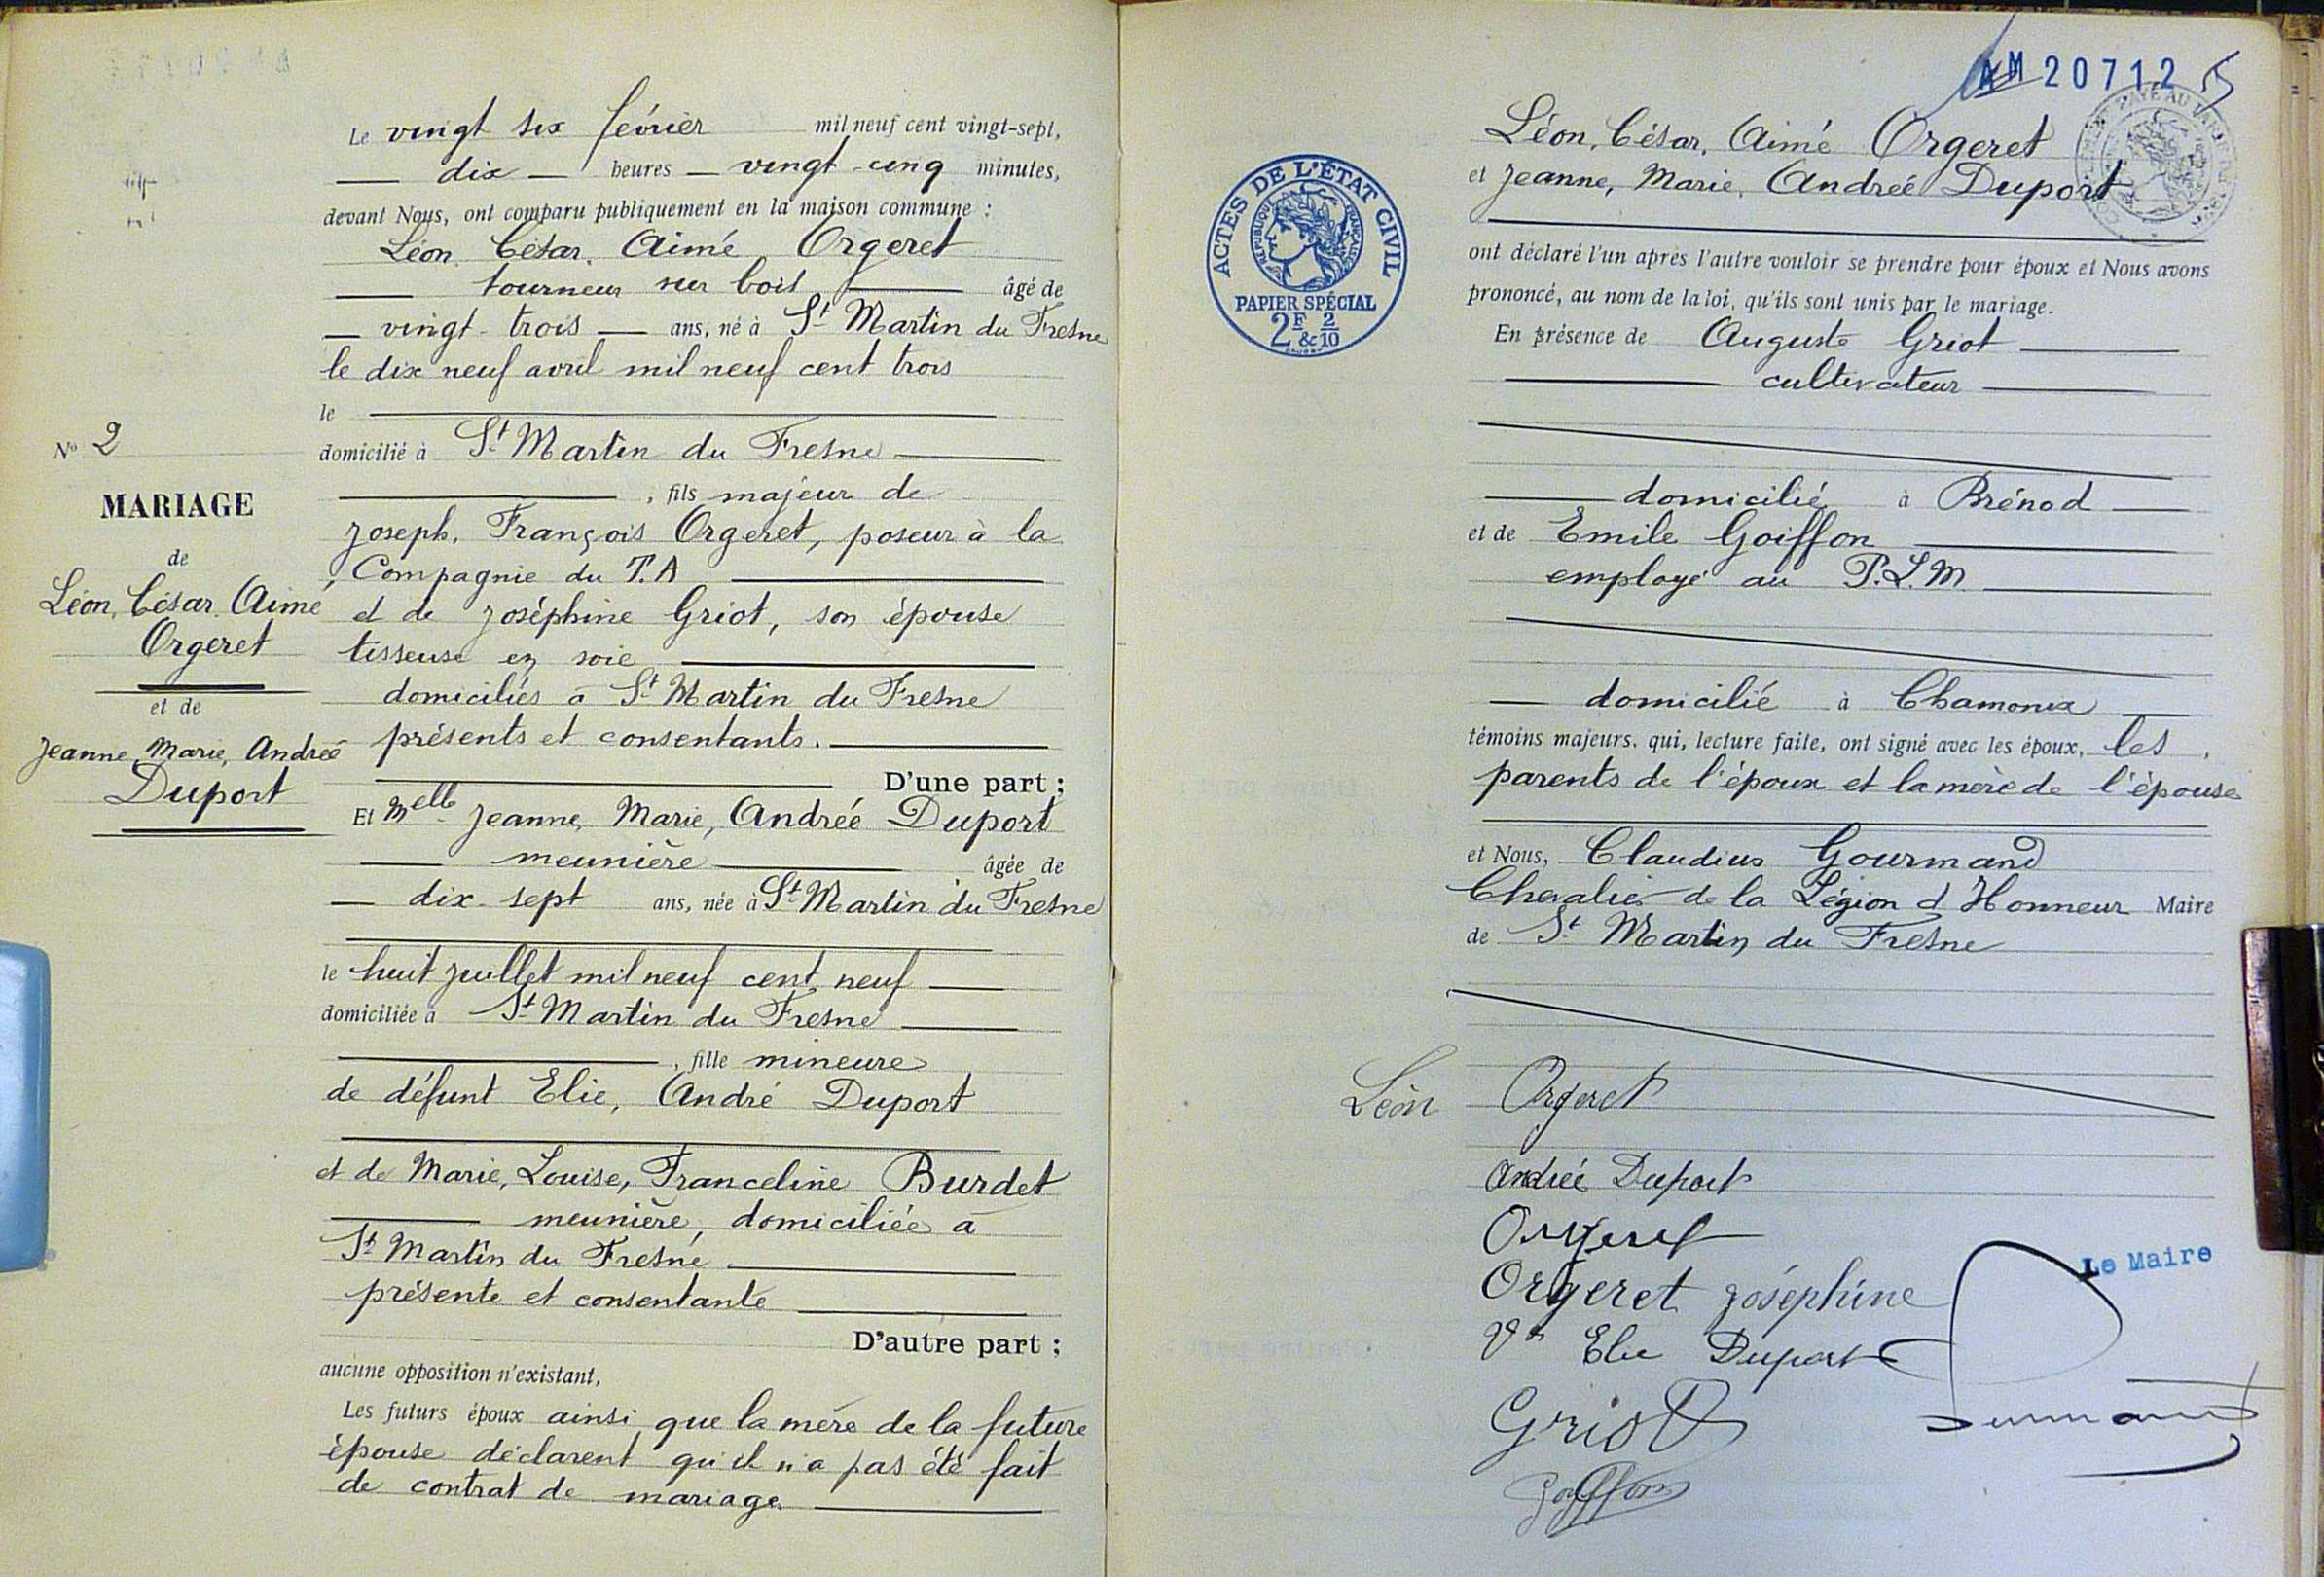 Le vingt six février mil neuf cent vingt-sept,
dix heures vingt-cinq minutes,
devant Nous, ont comparu publiquement en la maison commune :
Léon, César, Aimé Orgeret
tourneur sur bois âgé de
vingt-trois ans, né à St Martin du Fresne
le dix neuf avril mil neuf cent trois
le
domicilié à St Martin du Fresne
, fils majeur de
Joseph, François Orgeret, poseur à la
Compagnie du T.A
et de Joséphine Griot, son épouse
tisseuse en soie
domiciliés à St Martin du Fresne
présents et consentants.
D'une part ;
Et Melle Jeanne, Marie, Andreé Duport
meunière âgée de
dix-sept ans, née à St Martin du Fresne
le huit juillet mil neuf cent neuf
domiciliée à St Martin du Fresne
, fille mineure
de défunt Elie, André Duport
et de Marie, Louise, Franceline Burdet
meunière, domiciliée à
St Martin du Fresne
présente et consentante
D'autre part ;
aucune opposition n'existant,
Les futurs époux ainsi que la mère de la future
épouse déclarent qu'il n'a pas été fait
de contrat de mariage.
No 2
MARIAGE
de
Léon, César, Aimé
Orgeret
et de
Jeanne, Marie, Andreé
Duport
AM 20712
ACTES DE L'ÉTAT CIVIL
RÉPUBLIQUE FRANÇAISE
PAPIER SPÉCIAL
2F & 2/10
Léon, César, Aimé Orgeret
et Jeanne, Marie, Andreé Duport
ont déclaré l'un après l'autre vouloir se prendre pour époux et Nous avons
prononcé, au nom de la loi, qu'ils sont unis par le mariage.
En présence de Auguste Griot
cultivateur
domicilié à Brénod
et de Emile Goiffon
employé au P.L.M.
domicilié à Chamonix
témoins majeurs. qui, lecture faite, ont signé avec les époux, les
parents de l'époux et la mère de l'épouse
et Nous, Claudius Gourmand
Chevalier de la Légion d'Honneur Maire
de St Martin du Fresne
Léon Orgeret
Andrée Duport
Orgeret
Orgeret Joséphine
Le Maire
Ve Elie Duport
Griot
Goiffon